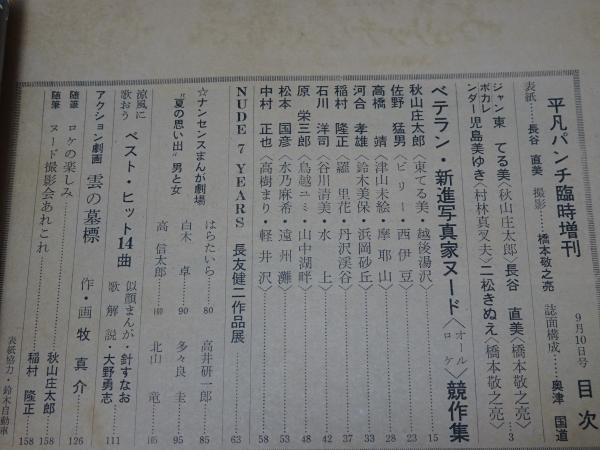 平凡パンチ臨時増刊 9月10日号 目次
表紙……長谷 直美 撮影……橋本敬之亮 誌面構成……奥津 国道
ジャンボカレンダー 東 てる美〈秋山庄太郎〉長谷 直美〈橋本敬之亮〉
児島美ゆき〈村林真叉夫〉二松きぬえ〈橋本敬之亮〉……3
ベテラン・新進写真家ヌード〈オールロケ〉競作集
秋山庄太郎〈東てる美・越後湯沢〉……15
佐野 猛男〈ビリー・西伊豆〉……23
高橋 靖〈津山未絵・摩耶山〉……28
河合 孝雄〈鈴木美保・浜岡砂丘〉……33
稲村 隆正〈羅 里花・丹沢渓谷〉……37
石川 洋司〈谷川清美・水上〉……42
原 栄三郎〈鳥越ユミ・山中湖畔〉……48
松本 国彦〈水乃麻希・遠州灘〉……53
中村 正也〈高樹まり・軽井沢〉……58
NUDE 7 YEARS 長友健二作品展……63
☆ナンセンスまんが劇場
"夏の思い出"男と女
はらたいら……80 高井研一郎……85
白木 卓……90 多々良 圭……95
高 信太郎……100 北山 竜……105
涼風に歌おう ベスト・ヒット14曲 似顔まんが・針すなお 歌解説・大野勇志……111
アクション劇画 雲の墓標 作・画 牧 真介……126
随筆 ロケの楽しみ……秋山庄太郎……158
随筆 ヌード撮影会あれこれ……稲村 隆正……158
表紙協力・鈴木自動車